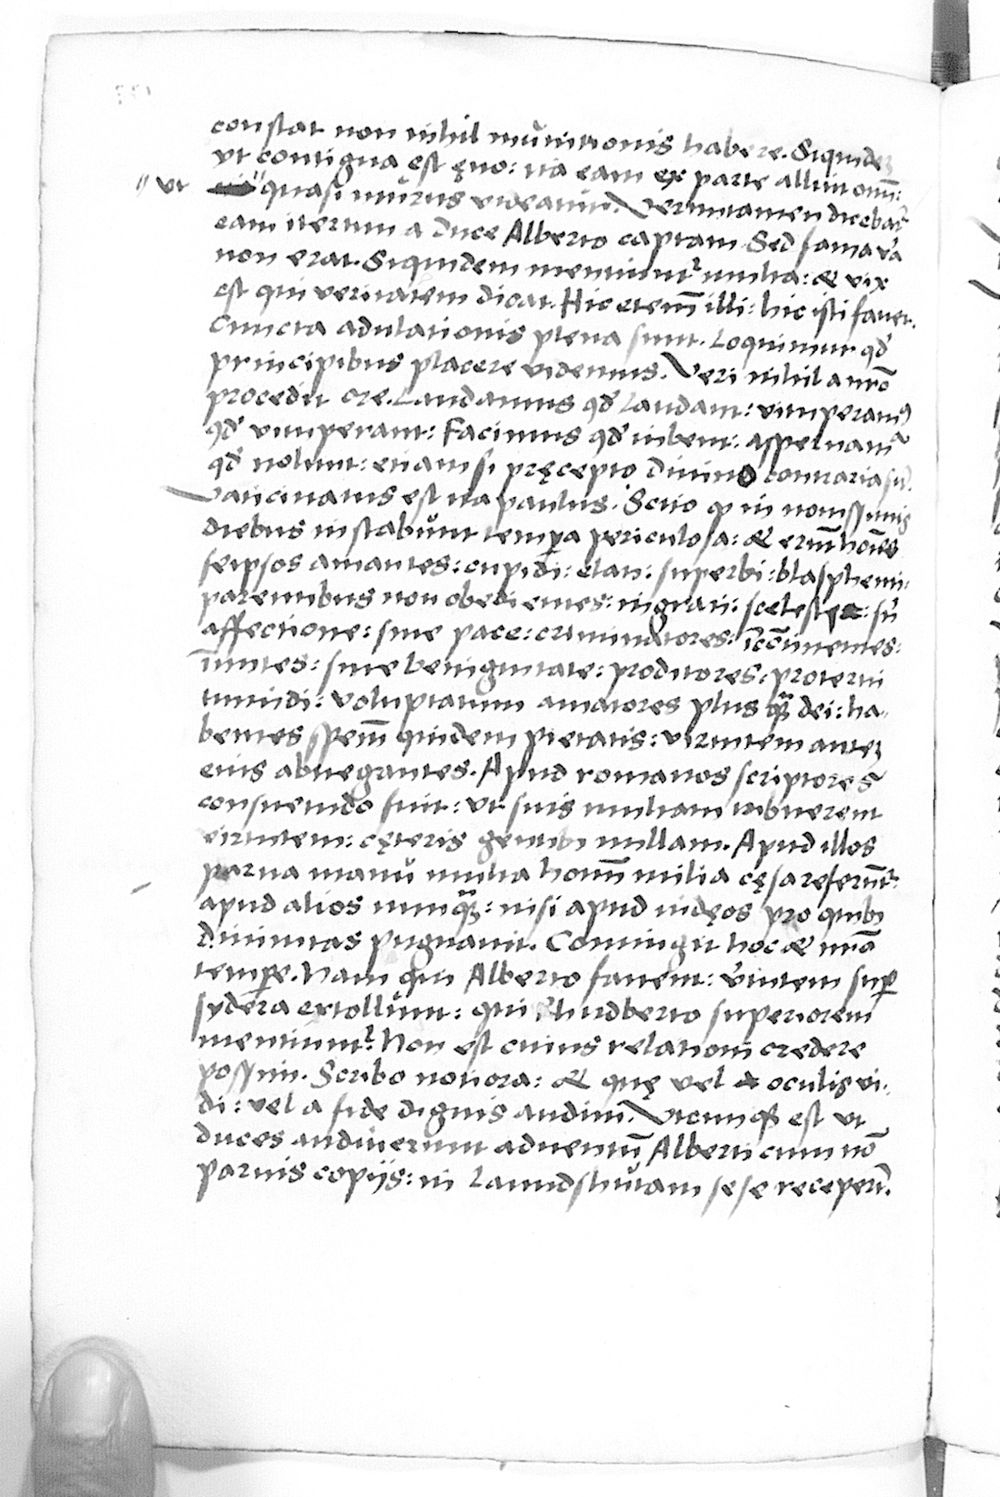 constat non nihil munitionis habere. Siquidē
ut contigua est ęno: ita eam ex parte alluit omñ:
"ut "quasi murus videatur. Veruntamen dicebat̃
eam iterum a duce Alberto captam. Sed fama v̄a
non erat. Siquidem mentiunt̃ multa: & vix
est qui veritatem dicat. Hic eteñi illi: hic isti favet.
Cuncta adulationis plena sunt. Loquimur qď
principibus placere videmus. Veri nihil a nr̄o
procedit ore. Laudamus qď laudant: vituperamꝰ
qď vituperant: Facimus qď iubent: aspernam̃
qď nolunt: etiam si pręcepto divino contraria sū̃.
Vaticinatus est ita paulus. Scito ꝙ in novissimis
diebus instabunt tempa periculosa: & erūt hoīes
seipsos amantes: cupidi: elati: superbi: blasphemi:
parentibus non obedientes: ingrati: scelesti: sñ
affectione: sine pace: criminatores: īcōtinentes:
īmites: sine benignitate: proditores: protervi
tumidi: voluptatum amatores plus q̃ dei: ha-
bentes speciē quidem pietatis: virtutem autē
eius abnegantes. Apud romanos scriptores
consuetudo fuit: ut suis multam tribuerent
virtutem: cęteris gentibꝫ nullam. Apud illos
parva manu multa homīm milia cęsa referūt̃:
apud alios nunq̃: nisi apud iudęos pro quibꝫ
divinitas pugnavit. Contingit hoc & nr̄o
tempe. Nam qui Alberto favent: v̄tutem sup̃
sydera extollunt: qui Rudberto superiorem
mentiunt̃. Non est cuius relationi credere
possim. Scribo notiora: & quę vel oculis vi-
di: vel a fide dignis audivi. Utcunqꝫ est ut
duces audiverunt adventū Alberti cum nō
parvis copijs: in Lanndshutam sese receper̃t.